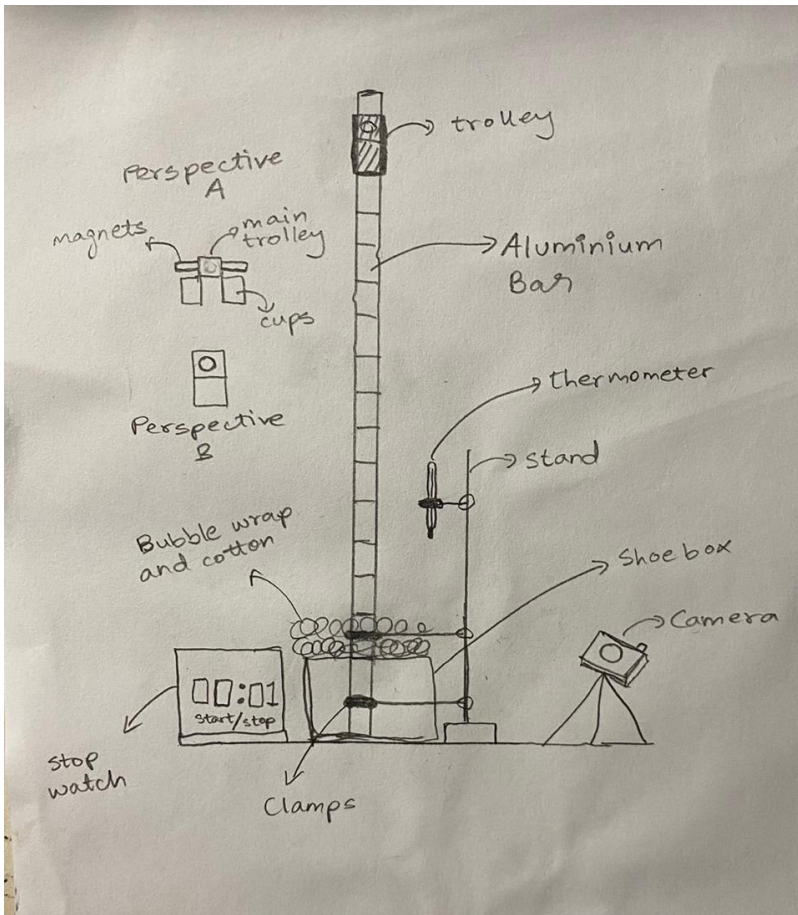 trolley
Perspective
A
magnets
main
trolley
cups
Aluminium
Bar
Perspective
B
thermometer
stand
Bubble wrap
and cotton
Shoebox
Camera
00:01
start/stop
stop
watch
Clamps